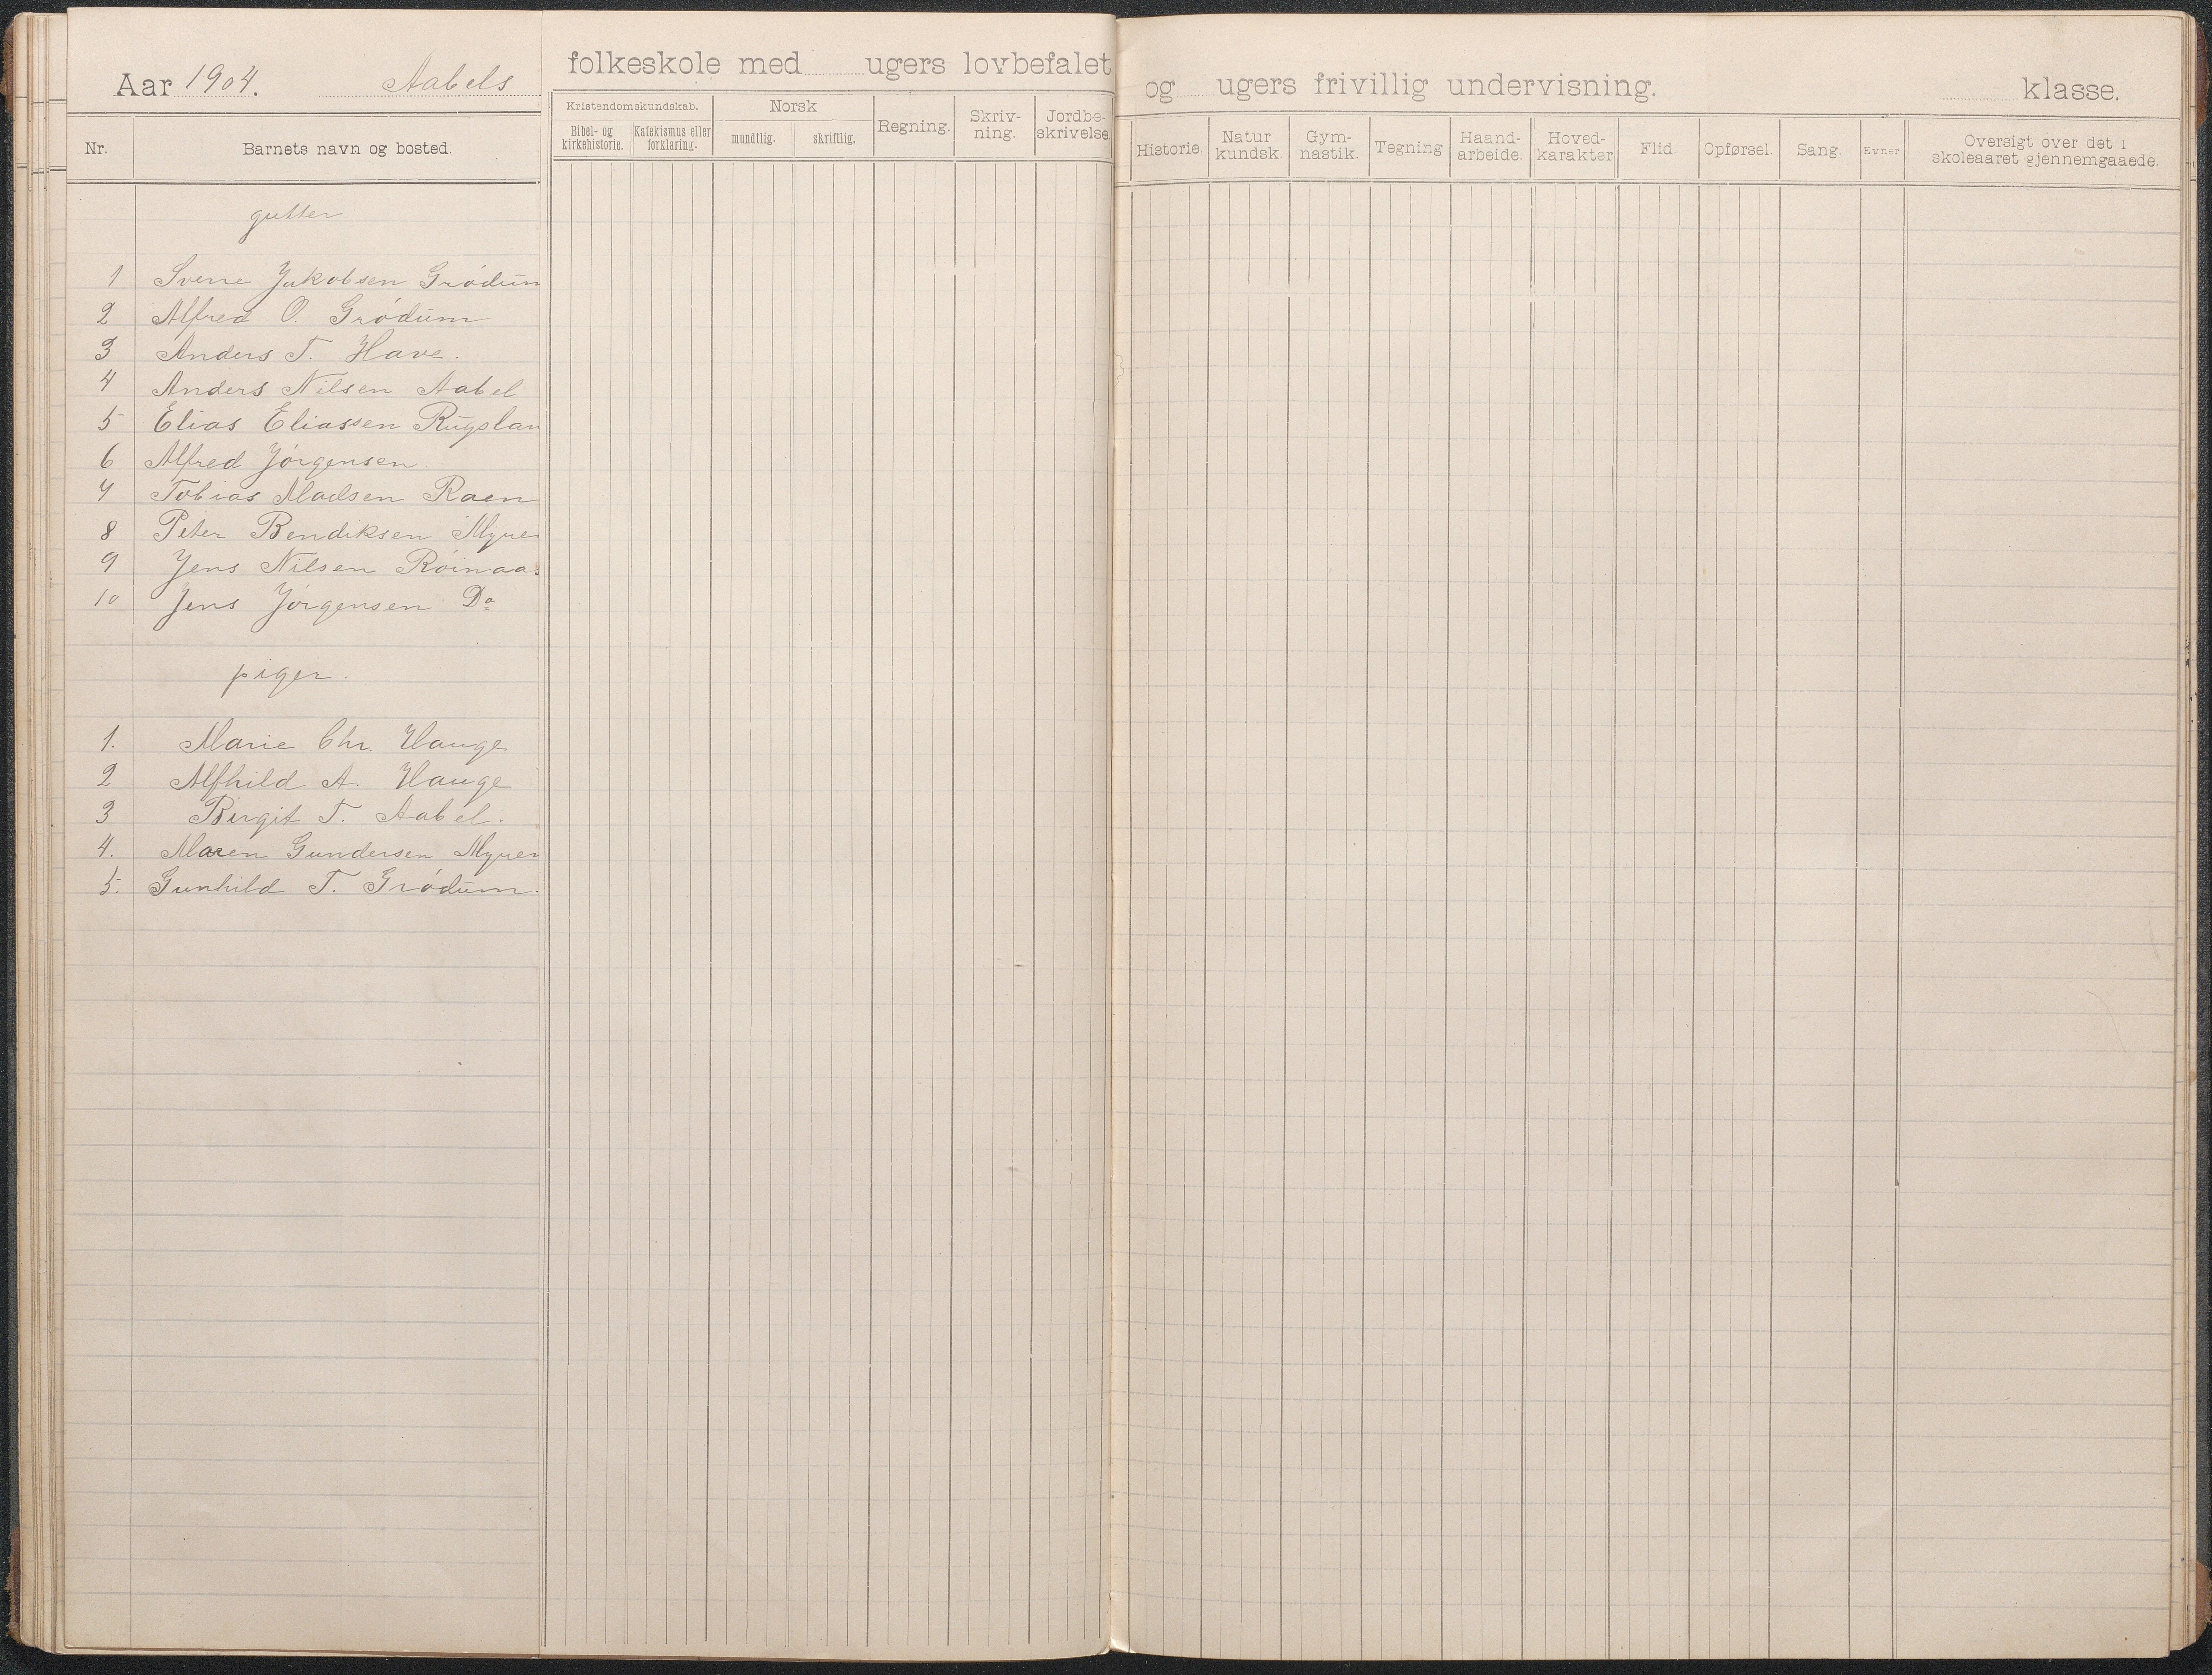 Aar 1904. Aabels folkeskole med ugers lovbefalet og ugers frivillig undervisning. klasse.
Nr. Barnets navn og bosted. Kristendomskundskab. Bibel- og kirkehistorie. Katekismus eller forklaring. Norsk mundtlig. skriftlig. Regning. Skriv-ning. Jordbe-skrivelse Historie. Natur kundsk. Gym-nastik. Tegning Haand-arbeide. Hoved-karakter Flid. Opførsel. Sang. Evner Oversigt over det i skoleaaret gjennemgaaede.
gutter
1 Sverre Jakobsen Grødum
2 Alfred O. Grødum
3 Anders T. Have.
4 Anders Nilsen Aabel
5 Elias Eliassen Rugslan
6 Alfred Jørgensen
7 Tobias Madsen Raen
8 Peter Bendiksen Myren
9 Jens Nilsen Røinaas
10 Jens Jørgensen Do
piger.
1. Marie Chr. Hauge
2 Alfhild A. Hauge
3 Birgit T. Aabel.
4. Maren Gundersen Myren
5. Gunhild T. Grødum.